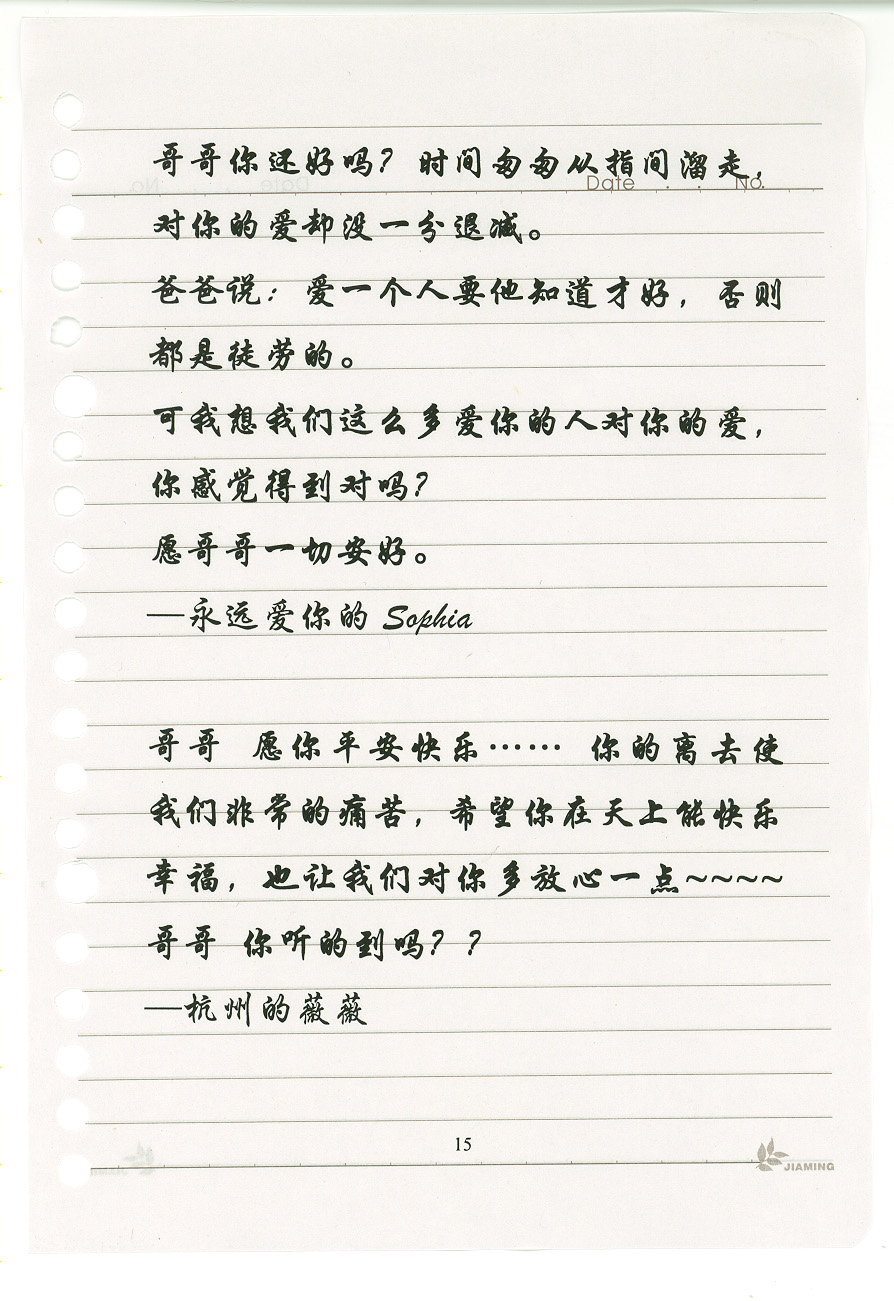 哥哥你还好吗？时间匆匆从指间溜走，
Date . . No.
对你的爱却没一分退减。
爸爸说：爱一个人要他知道才好，否则
都是徒劳的。
可我想我们这么多爱你的人对你的爱，
你感觉得到对吗？
愿哥哥一切安好。
—永远爱你的 Sophia
哥哥 愿你平安快乐…… 你的离去使
我们非常的痛苦，希望你在天上能快乐
幸福，也让我们对你多放心一点~~~~
哥哥 你听的到吗？？
—杭州的薇薇
15
JIAMING